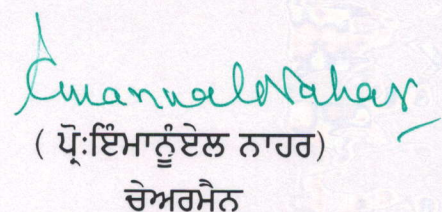 Emanual Nahar
( ਪ੍ਰੋ:ਇੰਮਾਨੂੰਏਲ ਨਾਹਰ)
ਚੇਅਰਮੈਨ